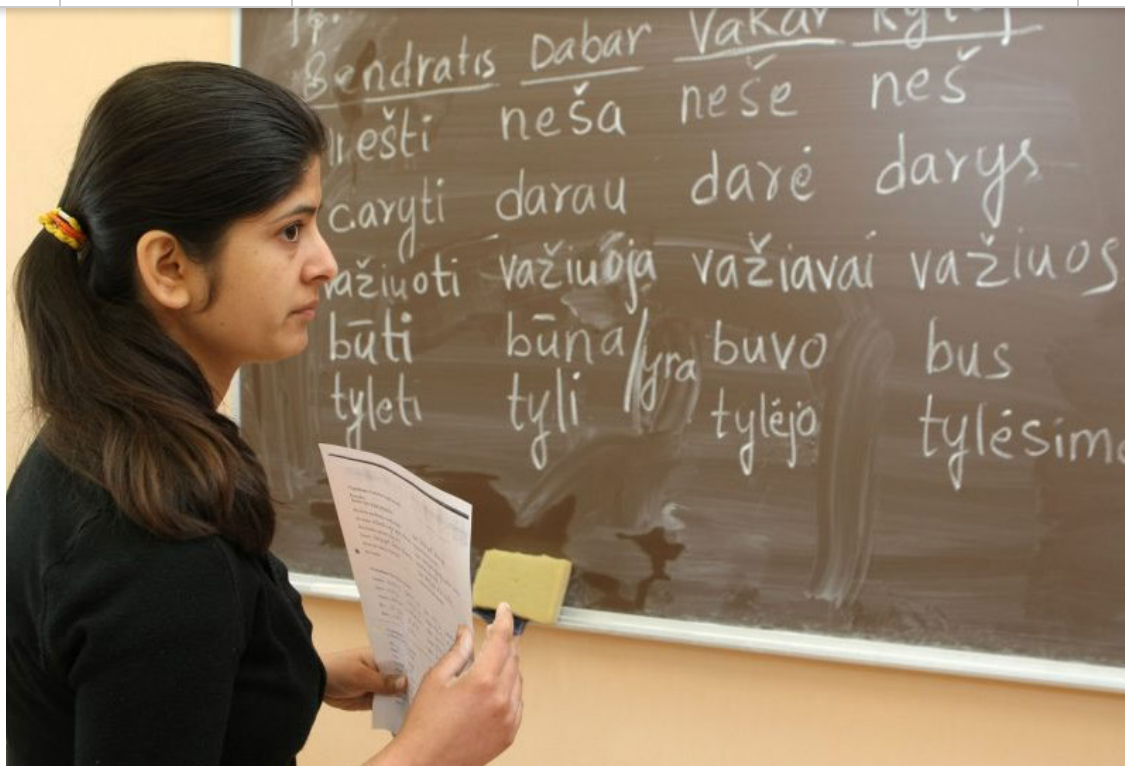 Bendratis Dabar Vakar
nešti neša neše neš
daryti darau darė darys
važiuoti važiuoja važiavai važiuos
būti būna/yra buvo bus
tyleti tyli tylėjo tylėsime